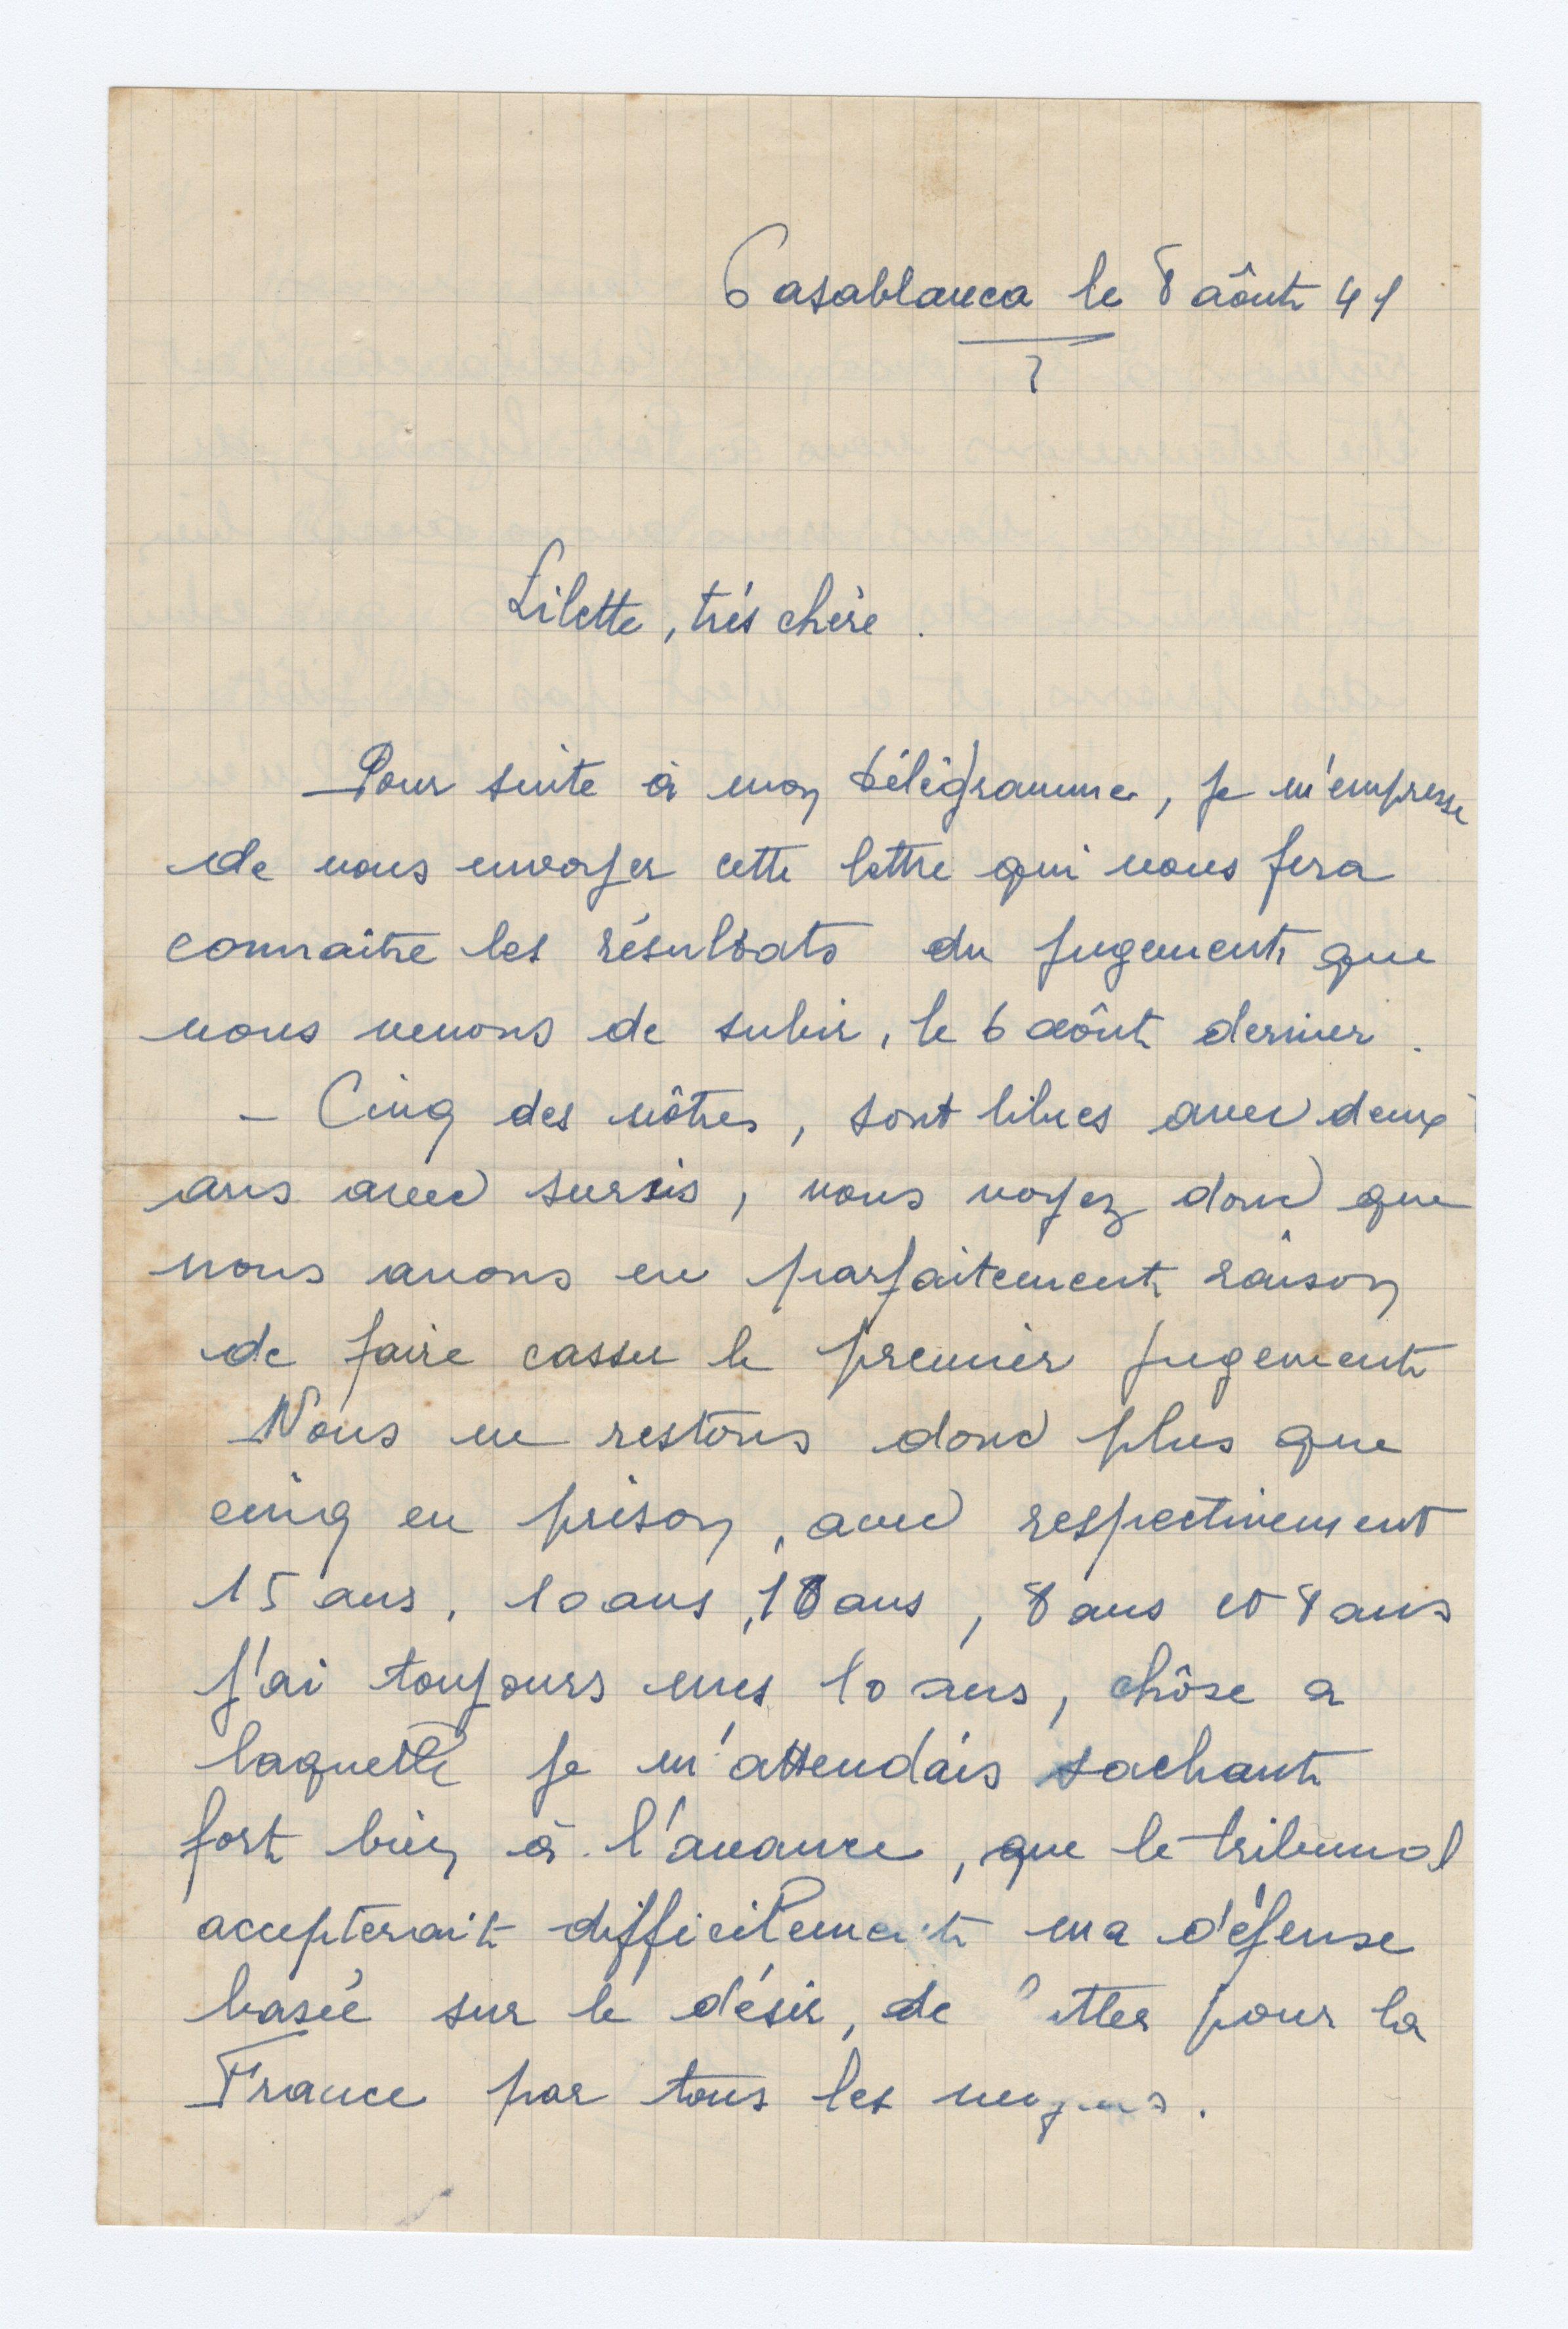 Casablanca le 8 aôut 41
Lilette, trés chère.
Pour suite à mon télégramme, je m'empresse
de vous envoyer cette lettre qui vous fera
connaitre les résultats du jugement que
nous venons de subir, le 6 aôut dernier.
- Cinq des nôtres, sont libres avec deux
ans avec sursis, vous voyez donc que
nous avons eu parfaitement raison
de faire casser le premier jugement
Nous ne restons donc plus que
cinq en prison, avec respectivement
15 ans, 10 ans, 10 ans, 8 ans et 8 ans
J'ai toujours mes 10 ans, chôse a
laquelle je m'attendais sachant
fort bien à l'avance, que le tribunal
accepterait difficilement ma défense
basée sur le désir, de lutter pour la
France par tous les moyens.